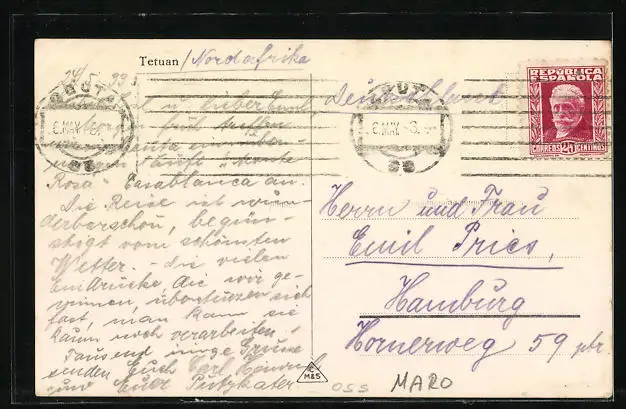 Tetuan / Nordafrika
24/5. 33.
CEUTA
8 MAY
Deutschland
REPUBLICA
ESPAÑOLA
CORREOS 25 CENTIMOS
u. lieber Emil
morgen früh treffen
Rosa - Casablanca an.
Die Reise ist wun-
derbar schön, begün-
stigt vom schönsten
Wetter. - die vielen
Eindrücke, die wir ge-
winnen, überstürzen sich
fast, man kann sie
kaum noch verarbeiten.
Tausend innige Grüsse
senden Euch Carl Heinrich
und Euer Putzkater
Herrn und Frau
Emil Pries,
Hamburg
Hornerweg 59 ptr.
M&S
OSS
MARO